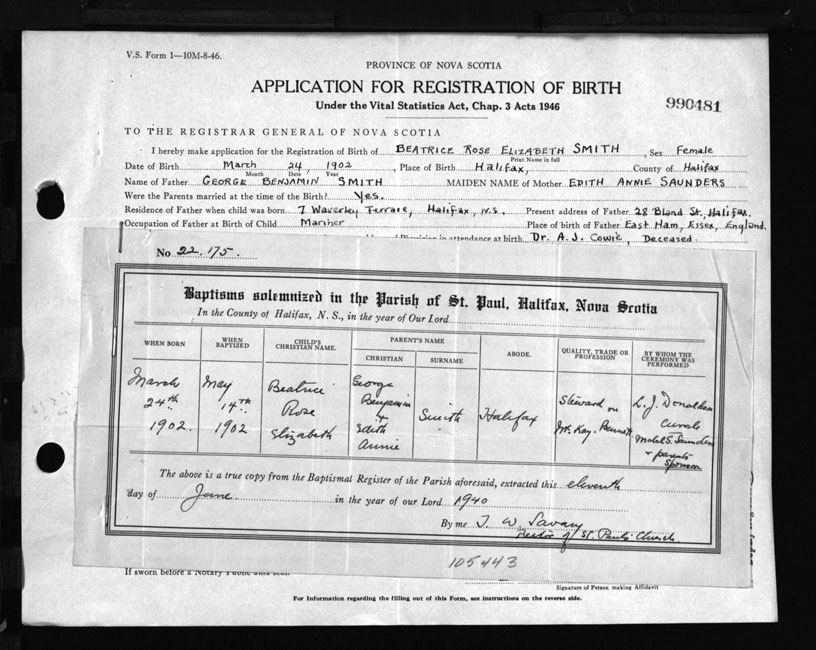 V.S. Form 1—10M-8-46.
PROVINCE OF NOVA SCOTIA
APPLICATION FOR REGISTRATION OF BIRTH
Under the Vital Statistics Act, Chap. 3 Acts 1946
990481
TO THE REGISTRAR GENERAL OF NOVA SCOTIA
I hereby make application for the Registration of Birth of BEATRICE ROSE ELIZABETH SMITH, Sex Female
Print Name in full
Date of Birth March 24, 1902, Place of Birth Halifax, County of Halifax
Month Date Year
Name of Father GEORGE BENJAMIN SMITH MAIDEN NAME of Mother EDITH ANNIE SAUNDERS
Were the Parents married at the time of the Birth? Yes.
Residence of Father when child was born 7 Waverley Terrace, Halifax, N.S. Present address of Father 28 Bland St., Halifax.
Occupation of Father at Birth of Child Mariner Place of birth of Father East Ham, Essex, England.
Physician in attendance at birth Dr. A. J. Cowie, Deceased.
No 22,175.
Baptisms solemnized in the Parish of St. Paul, Halifax, Nova Scotia
In the County of Halifax, N. S., in the year of Our Lord
WHEN BORN
WHEN BAPTIZED
CHILD'S CHRISTIAN NAME.
PARENT'S NAME
CHRISTIAN
SURNAME
ABODE.
QUALITY, TRADE OR PROFESSION
BY WHOM THE CEREMONY WAS PERFORMED
March 24th 1902.
May 14th 1902
Beatrice Rose Elizabeth
George Benjamin + Edith Annie
Smith
Halifax
Steward on Mc.Kay. Bennett
L. J. Donaldson Curate
Mabel S. Saunders + parents Sponsors
The above is a true copy from the Baptismal Register of the Parish aforesaid, extracted this eleventh
day of June in the year of our Lord 1940
By me T. W. Savary
Rector of St. Paul's Church
105443
If sworn before a Notary Public affix seal.
Signature of Person making Affidavit
For Information regarding the filling out of this Form, see instructions on the reverse side.